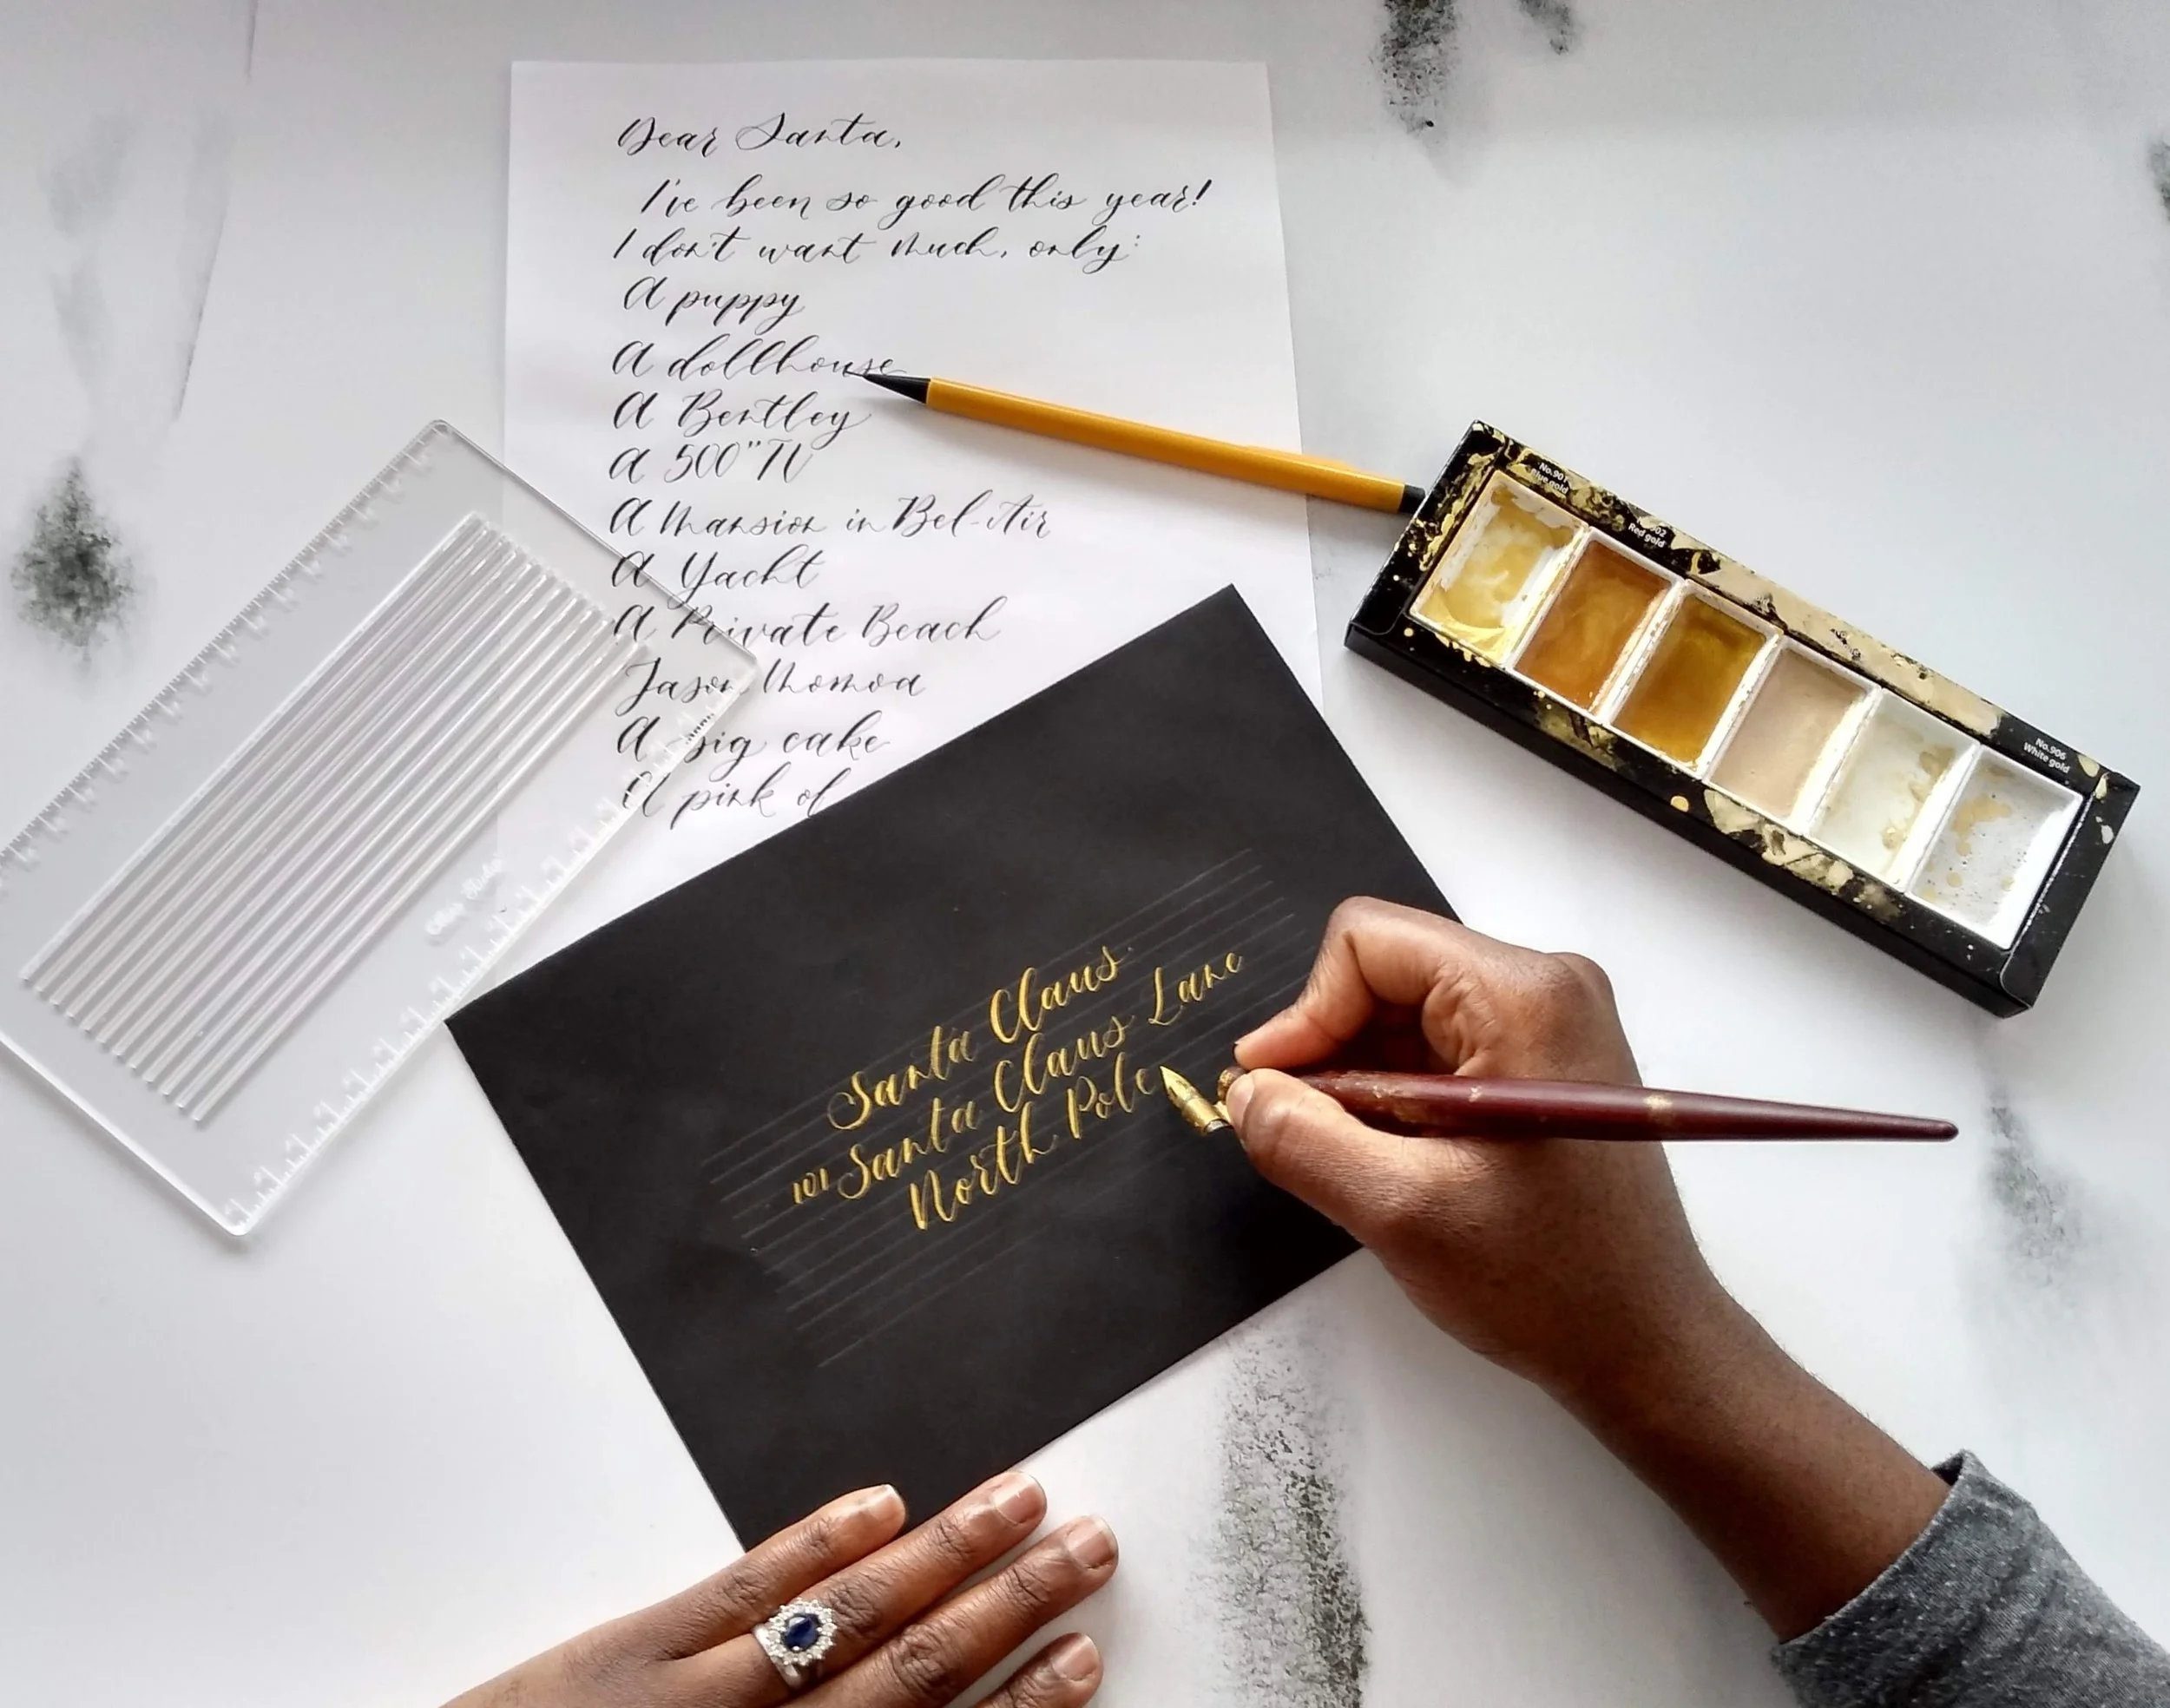 Dear Santa,
I've been so good this year!
I don't want much, only:
A puppy
A dollhouse
A Bentley
A 500" TV
A Mansion in Bel-Air
A Yacht
A Private Beach
Jason Momoa
A big cake
A pink of
Santa Claus
101 Santa Claus Lane
North Pole
No.901
Blue gold
Red gold
No.906
White gold